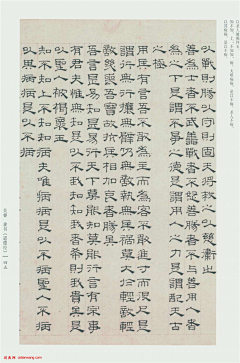 以戰則勝以守則固天將救之以慈衛之
善為士者不武善戰者不怒善勝者不与善用人者
為之下是謂不爭之德是謂用人之力是謂配天古
之極
用兵有言吾不敢為主而為客不敢進寸而退尺是
謂行無行攘無臂仍無敵執無兵禍莫大於輕敵輕
敵幾喪吾寶故抗兵相加哀者勝矣
吾言甚易知甚易行天下莫能知莫能行言有宗事
有君夫唯無知是以不我知知我者希則我貴矣是
以聖人被褐懷玉
知不知上不知知病夫唯病病是以不病聖人不病
以其病病是以不病